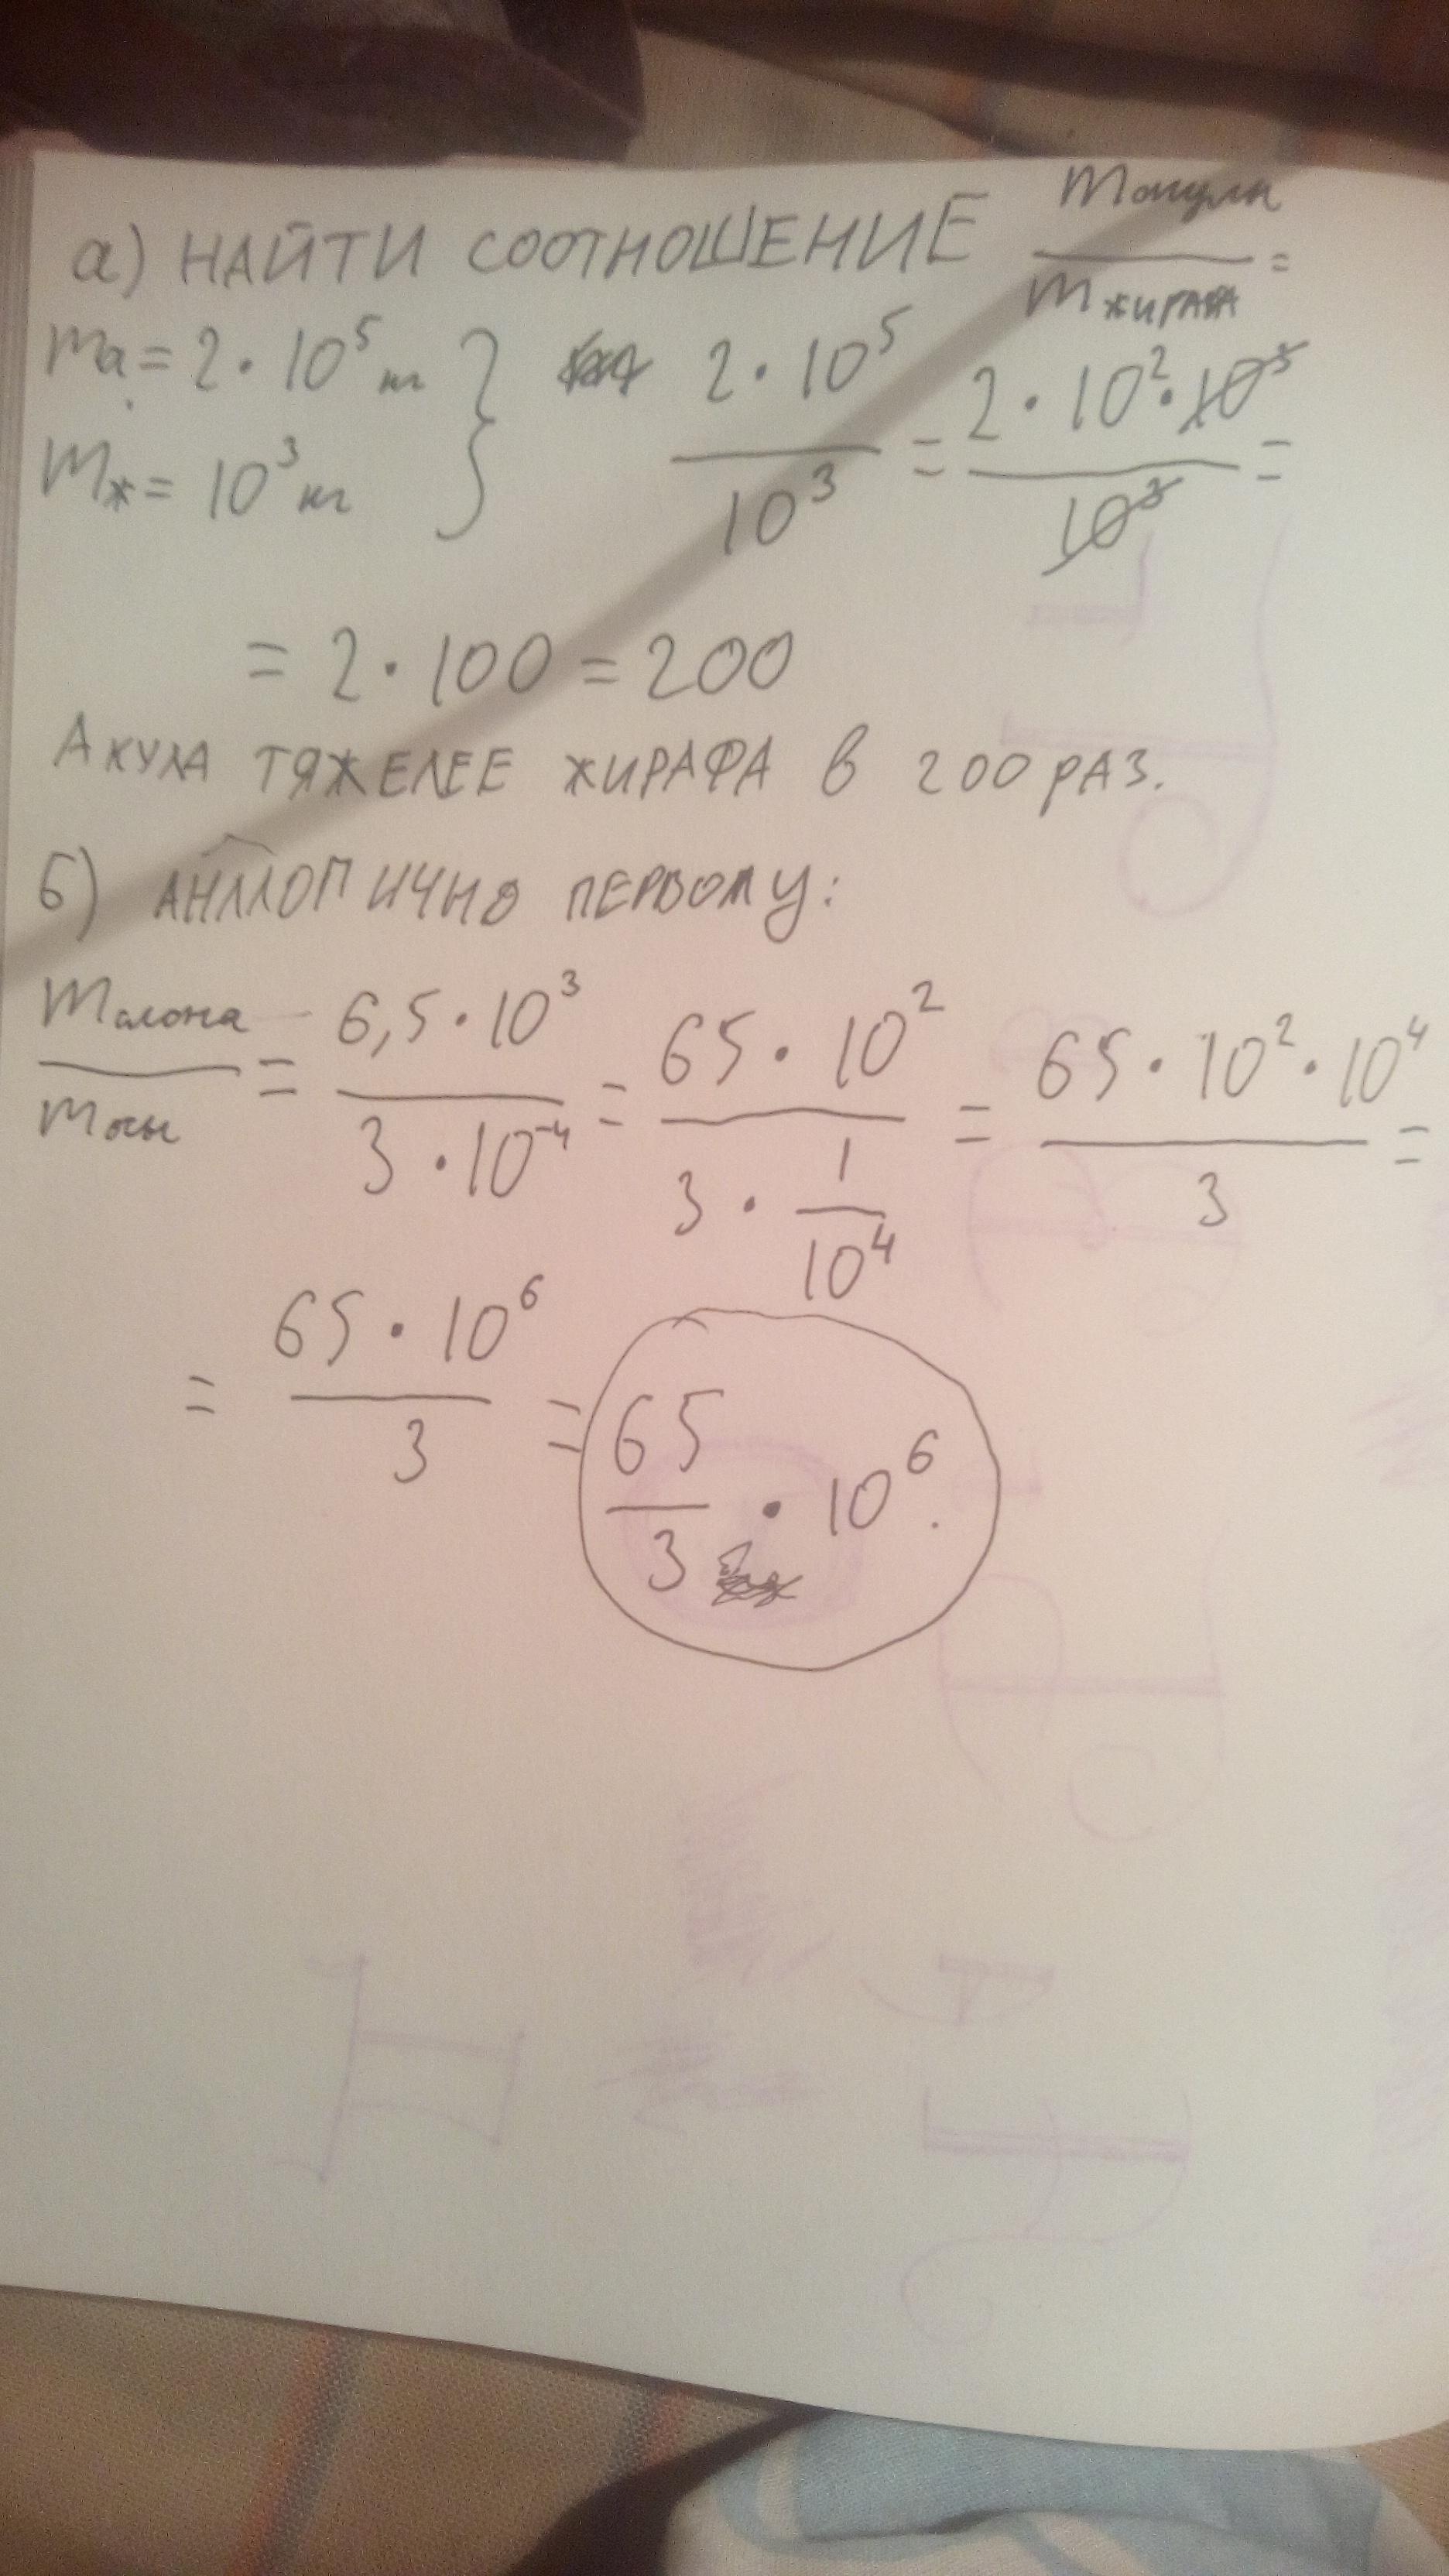 а) НАЙТИ СООТНОШЕНИЕ mакулы / mжирафа =
mа = 2 · 10⁵ кг } 2 · 10⁵ / 10³ = 2 · 10² · 10³ / 10³ =
mж = 10³ кг
= 2 · 100 = 200
АКУЛА ТЯЖЕЛЕЕ ЖИРАФА В 200 РАЗ.
б) АНАЛОГИЧНО ПЕРВОМУ:
mслона / mосы = 6,5 · 10³ / 3 · 10⁻⁴ = 65 · 10² / 3 · 1/10⁴ = 65 · 10² · 10⁴ / 3 =
= 65 · 10⁶ / 3 = 65/3 · 10⁶.